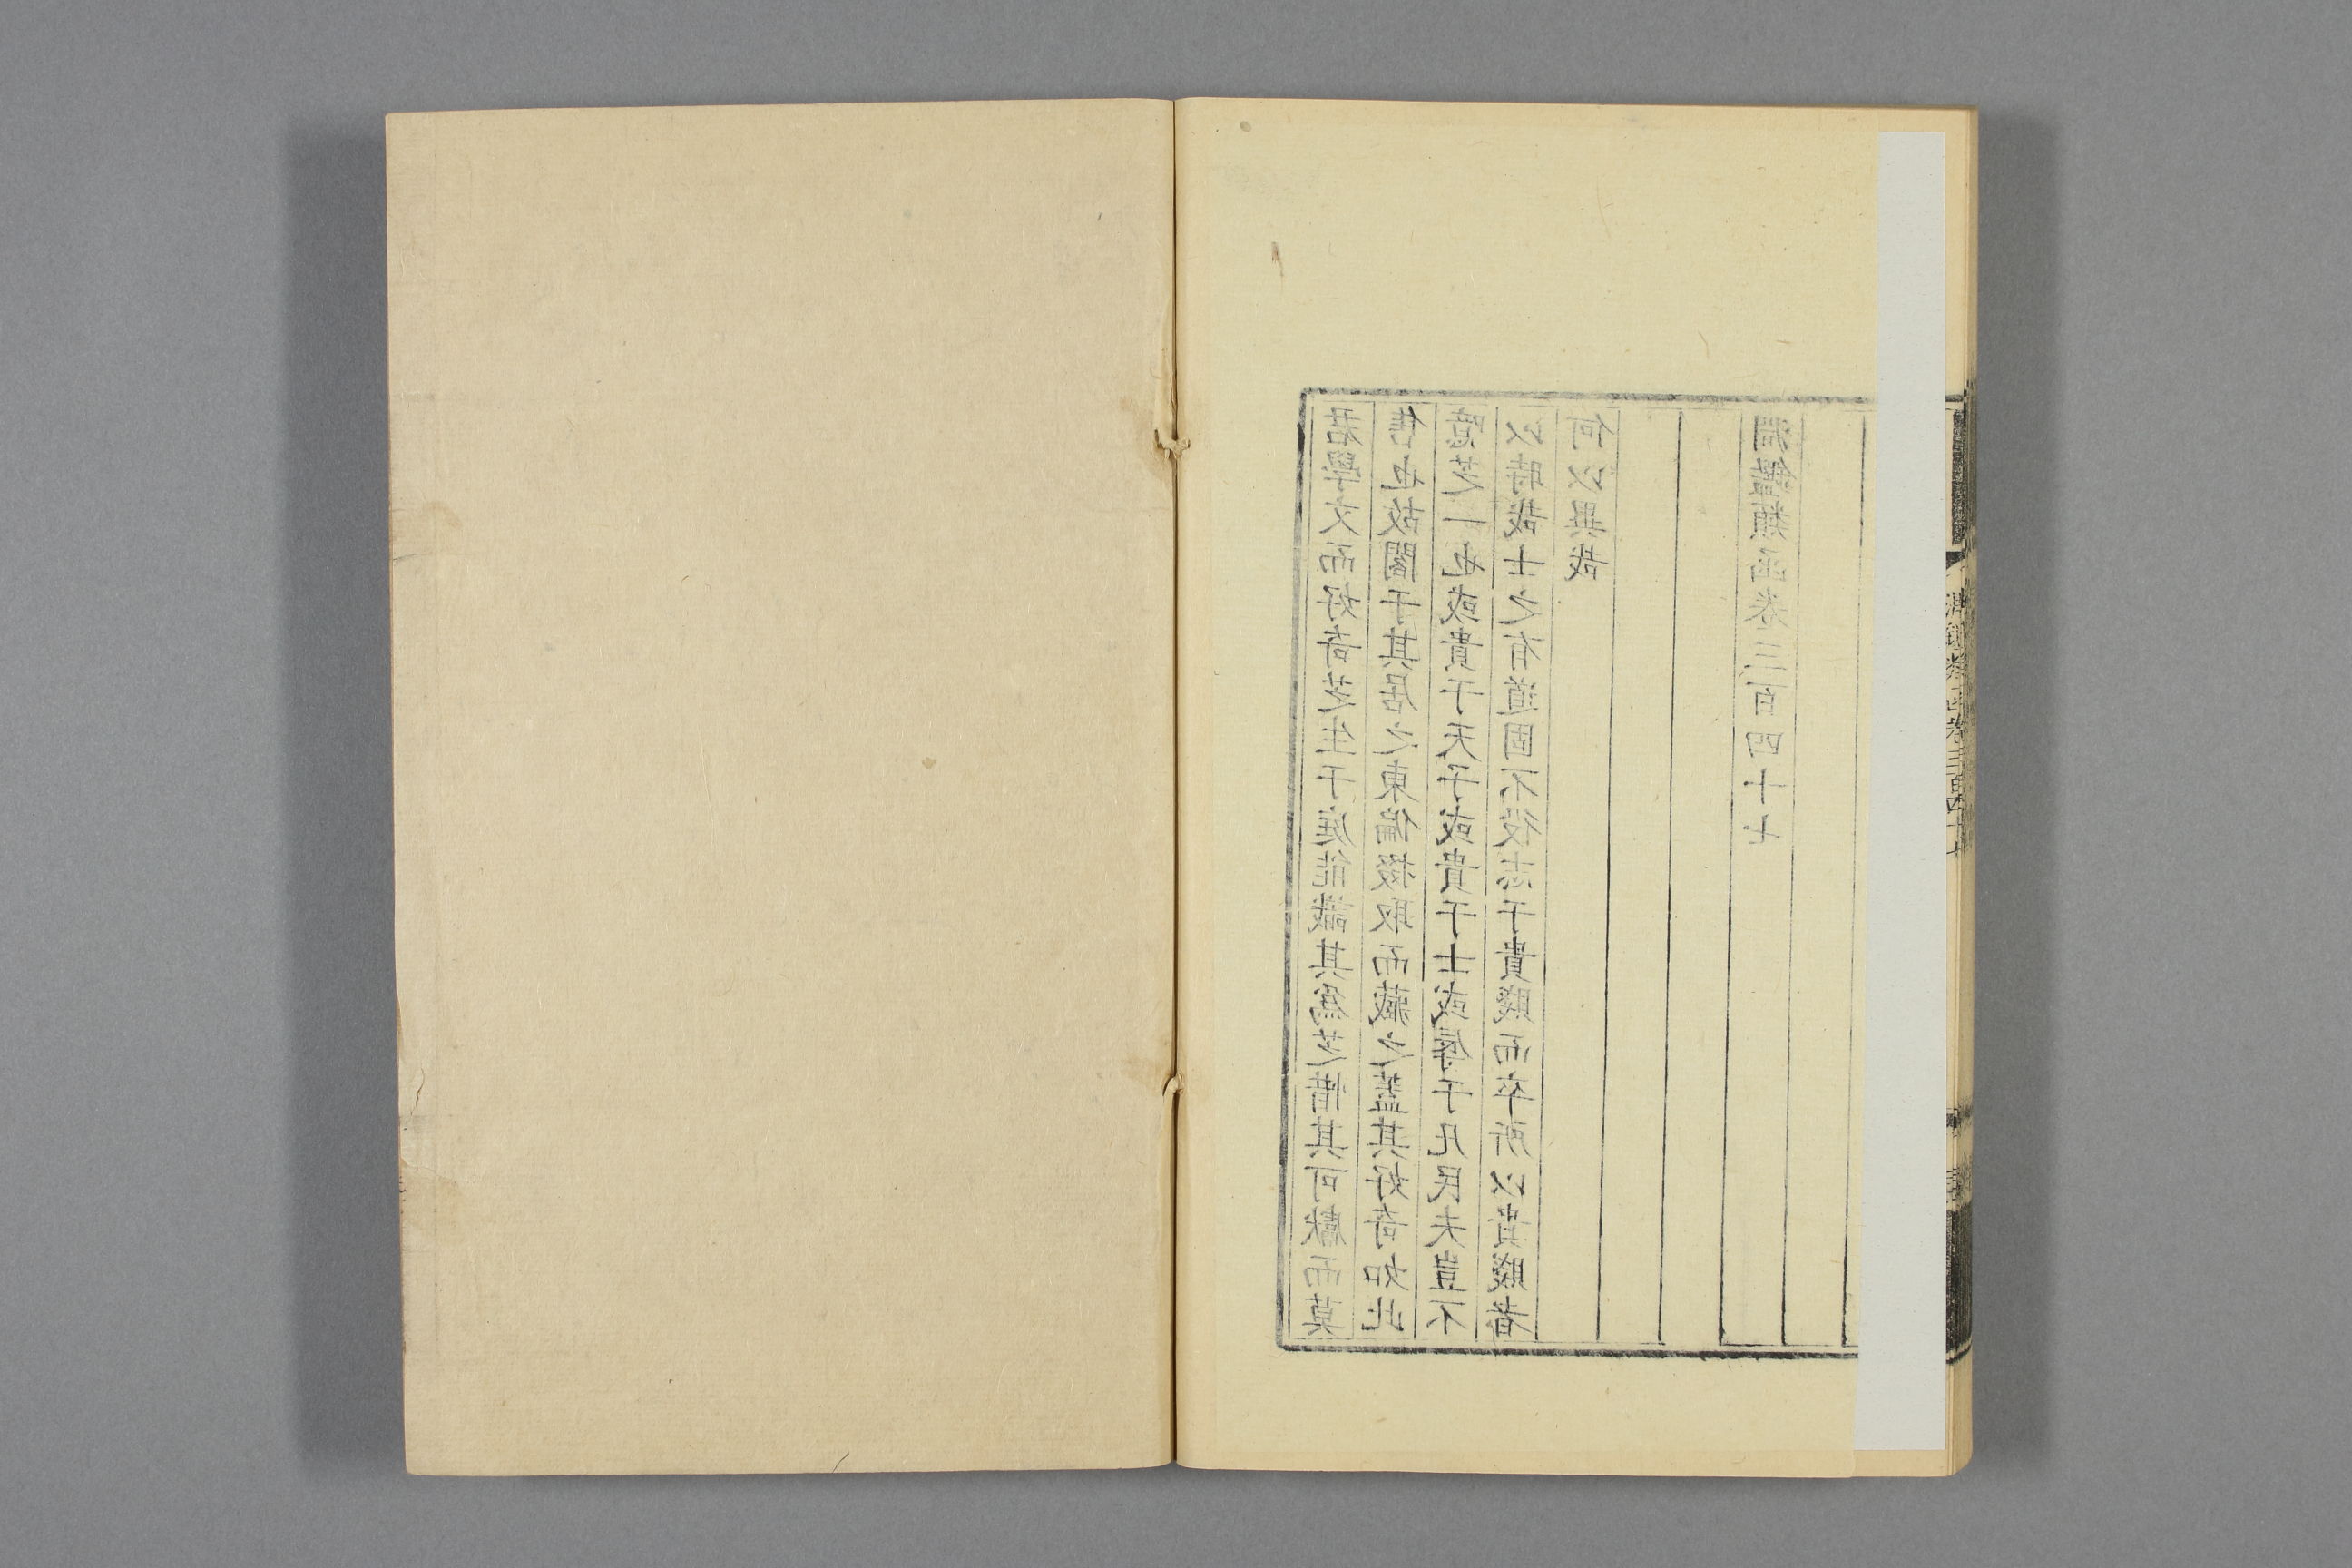 君學文而好奇芝生于庭能識其為芝惜其可獻而莫
售也故閣于其居之東偏掇取而藏之蓋其好奇如此
噫芝一也或貴于天子或貴于士或辱于凡民夫豈不
以時哉士之有道固不役志于貴賤而卒所以貴賤者
何以異哉
淵鑑類函卷三百四十七